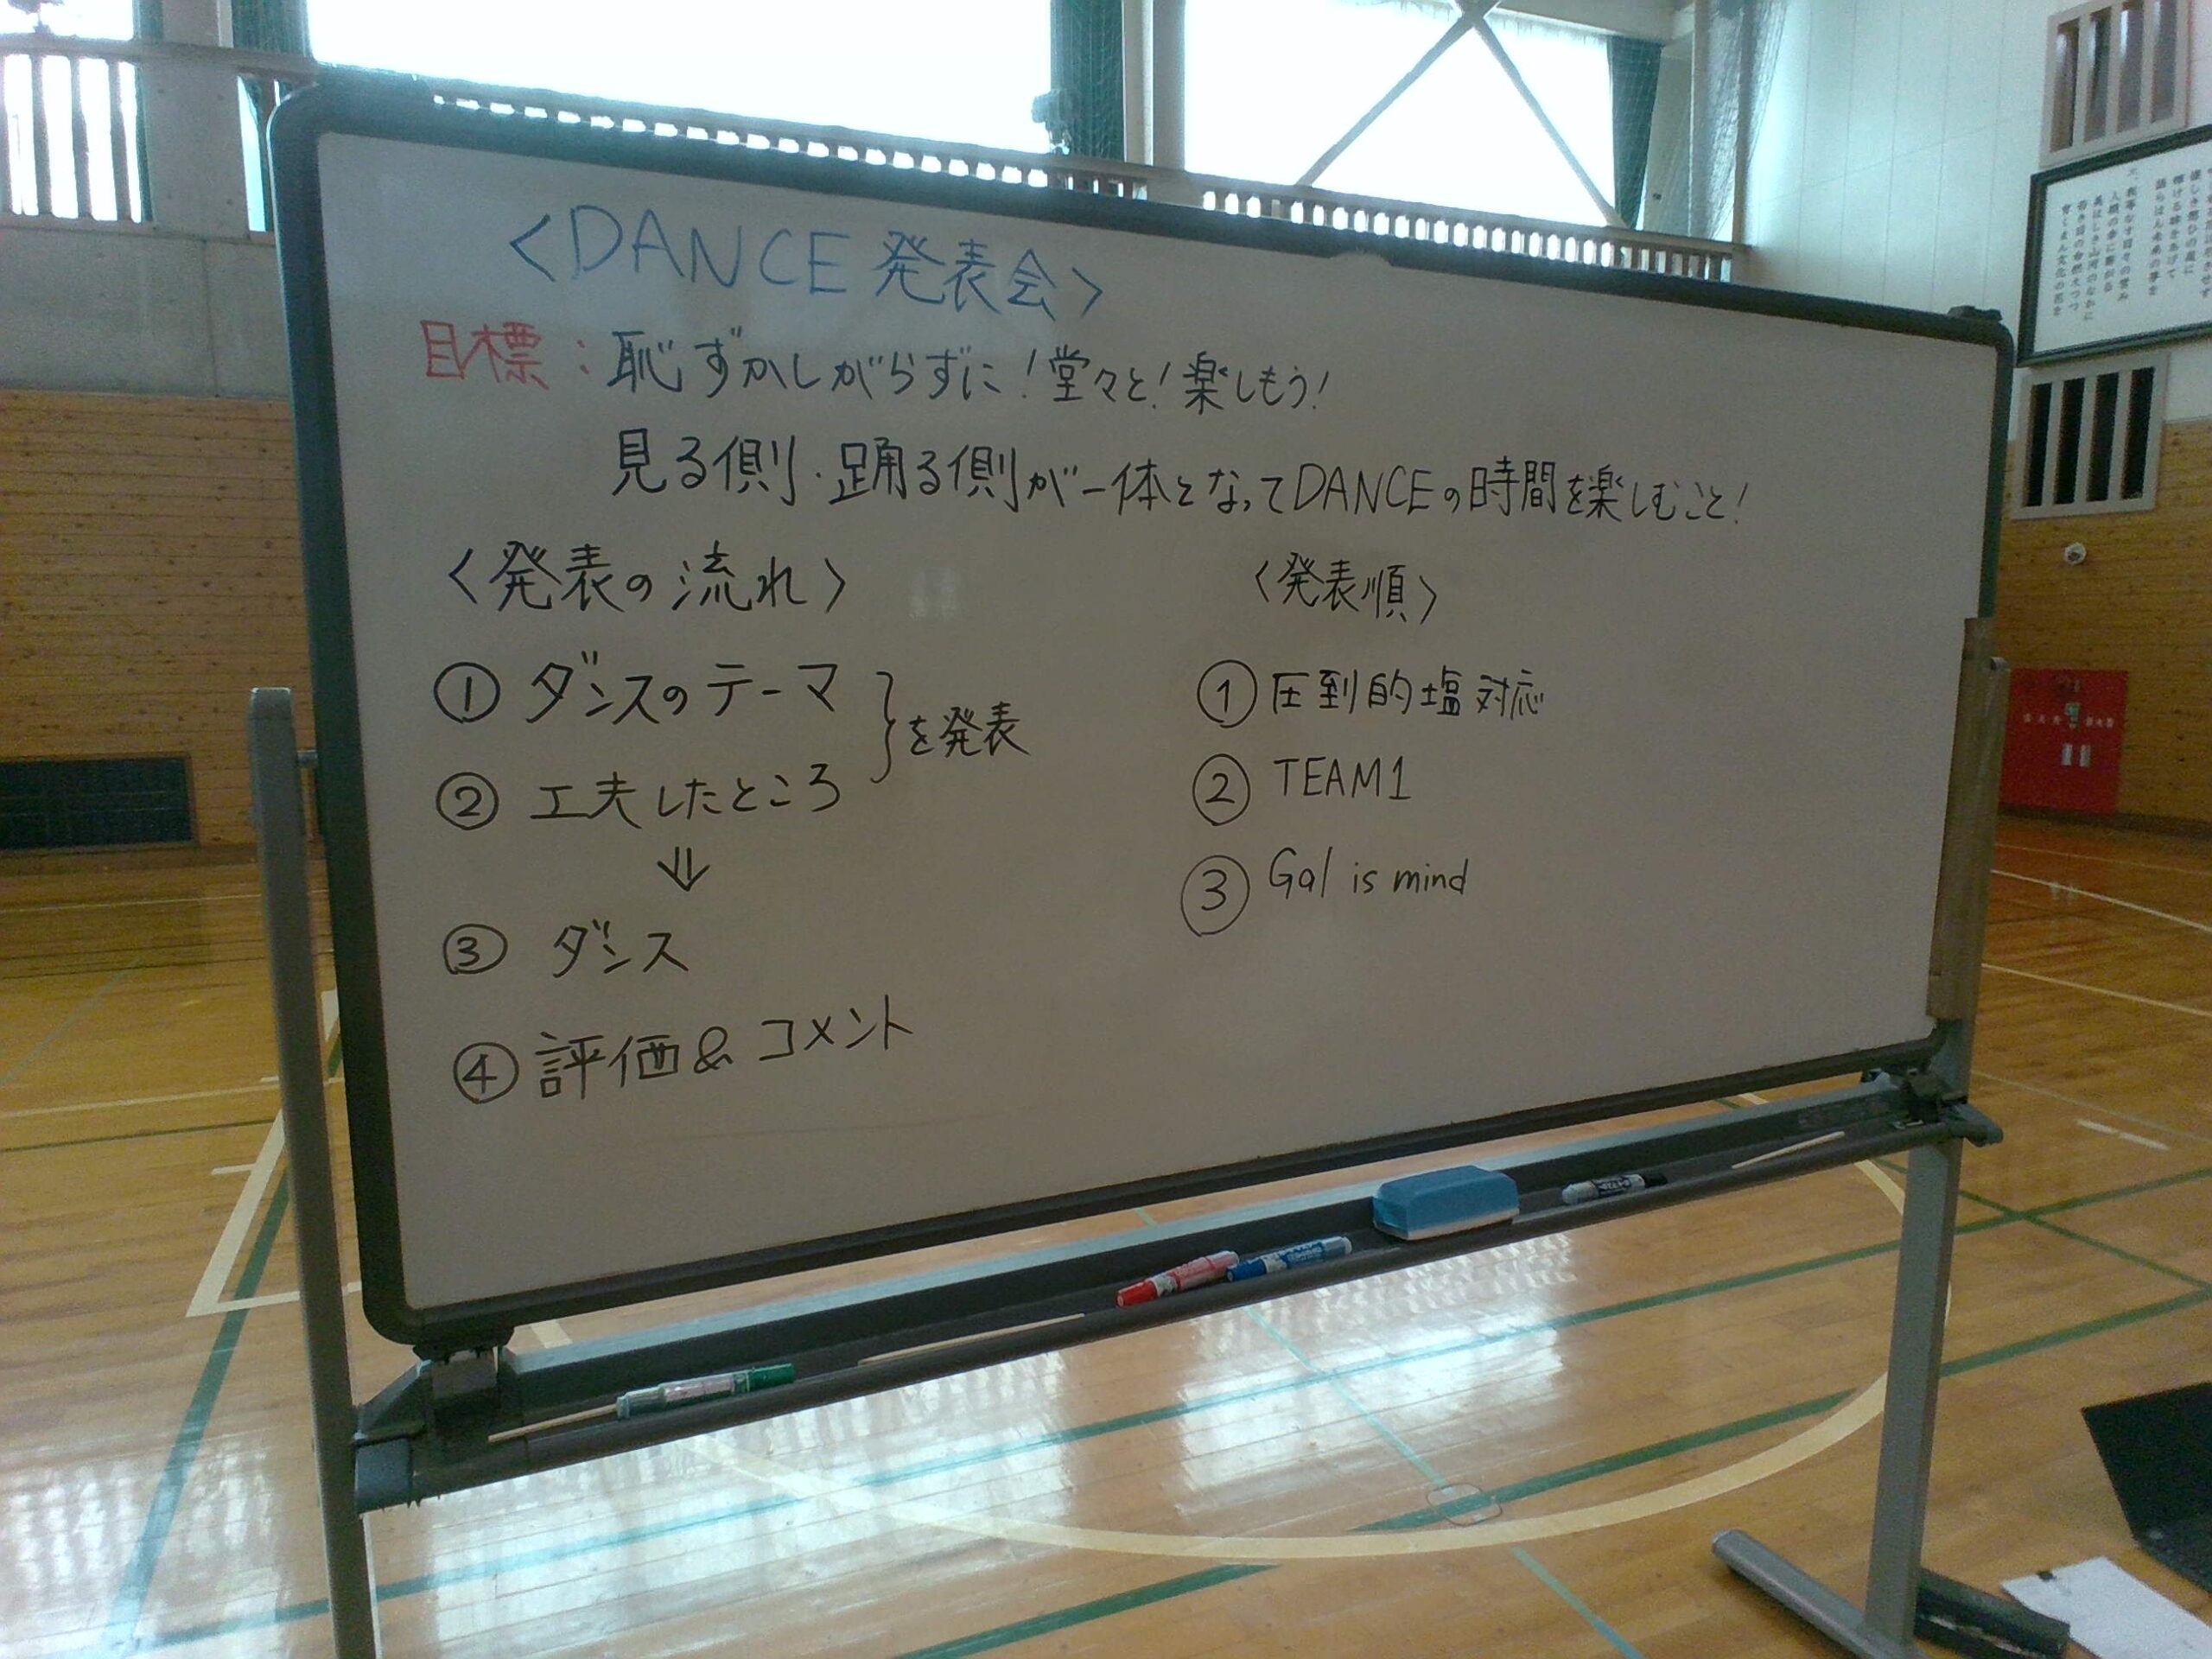 <DANCE 発表会>
目標：恥ずかしがらずに！堂々と！楽しもう！
見る側・踊る側が一体となってDANCEの時間を楽しむこと！
<発表の流れ>
① ダンスのテーマ
② 工夫したところ
}を発表
⇓
③ ダンス
④ 評価&コメント
<発表順>
① 圧倒的塩対応
② TEAM1
③ Gal is mind